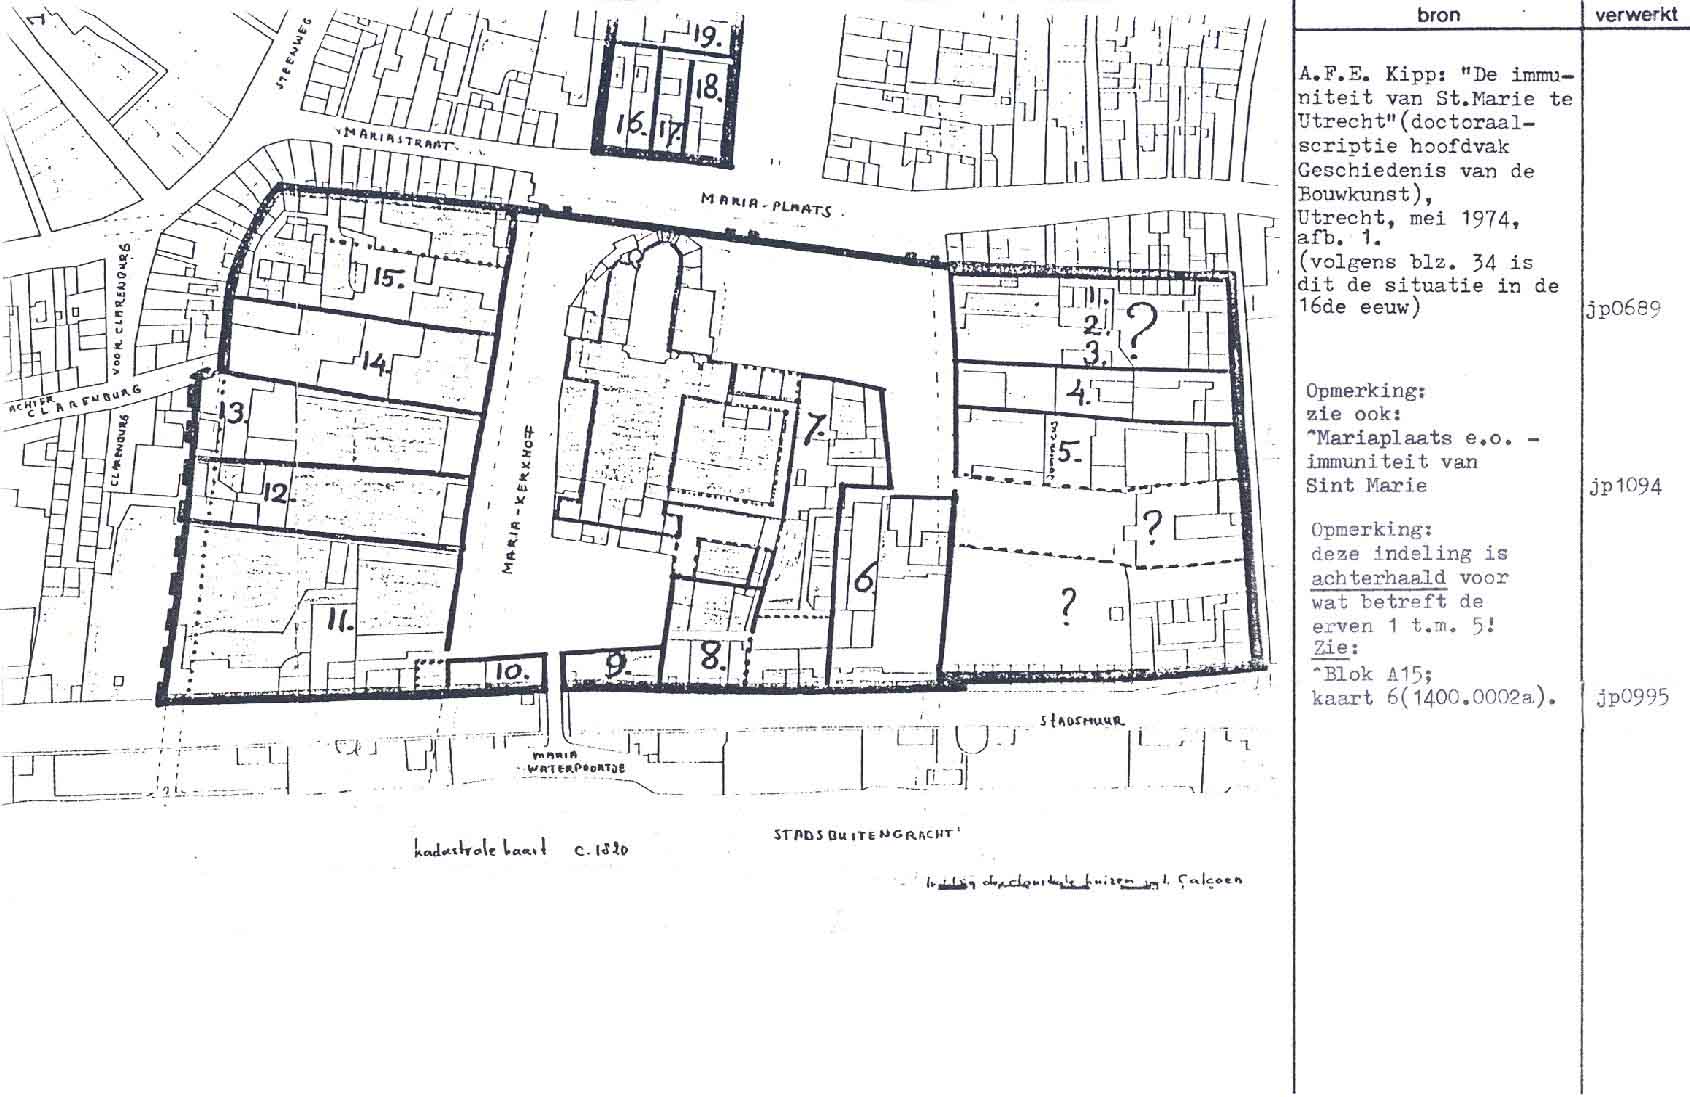 STEENWEG
MARIASTRAAT
19.
18.
16.
17.
MARIA-PLAATS
VOOR CLARENBURG
ACHTER
CLARENBURG
CLARENBURG
MARIA-KERKHOF
15.
14.
13.
12.
11.
10.
9.
8.
7.
6.
1.
2.
3.
?
4.
5.
?
?
STADSMUUR
MARIA
WATERPOORTJE
STADSBUITENGRACHT
kadastrale kaart c. 1820
huizen
bron
verwerkt
A.F.E. Kipp: "De immu-
niteit van St.Marie te
Utrecht"(doctoraal-
scriptie hoofdvak
Geschiedenis van de
Bouwkunst),
Utrecht, mei 1974,
afb. 1.
(volgens blz. 34 is
dit de situatie in de
16de eeuw)
jp0689
Opmerking:
zie ook:
^Mariaplaats e.o. -
immuniteit van
Sint Marie
jp1094
Opmerking:
deze indeling is
achterhaald voor
wat betreft de
erven 1 t.m. 5!
Zie:
^Blok A15;
kaart 6(1400.0002a).
jp0995